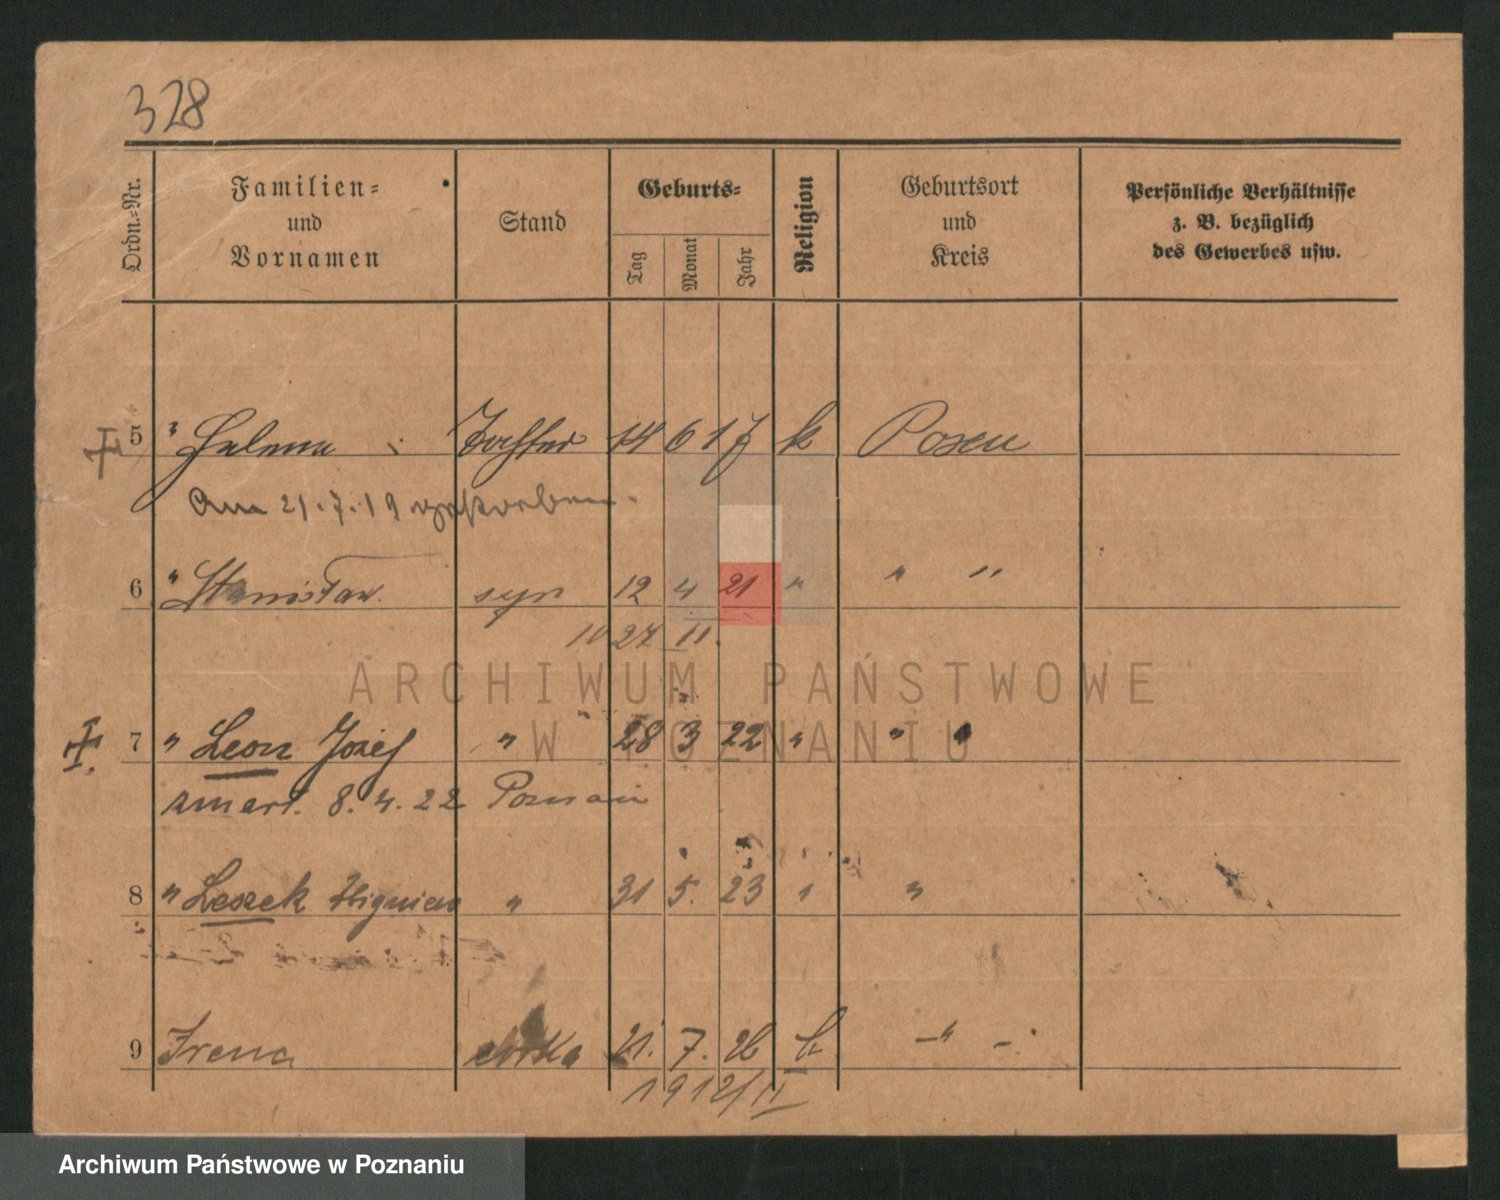 328
Ordn.-Nr. Familien- und Vornamen Stand Geburts- Tag Monat Jahr Religion Geburtsort und Kreis Persönliche Verhältnisse z. B. bezüglich des Gewerbes usw.
5 " Helena Tochter 14 6 17 k Posen
Am 21.7.19 gestorben.
6 " Stanisław syn 12 4 21 " " "
27 11.
ARCHIWUM PAŃSTWOWE
W POZNANIU
7 " Leon Józef " 28 3 22 " " "
zmarł. 8.4.22 Poznań
8 " Leszek Zbigniew " 31 5. 23 " "
9 Irena córka 21. 7. 26 k - " -
1912/II
Archiwum Państwowe w Poznaniu